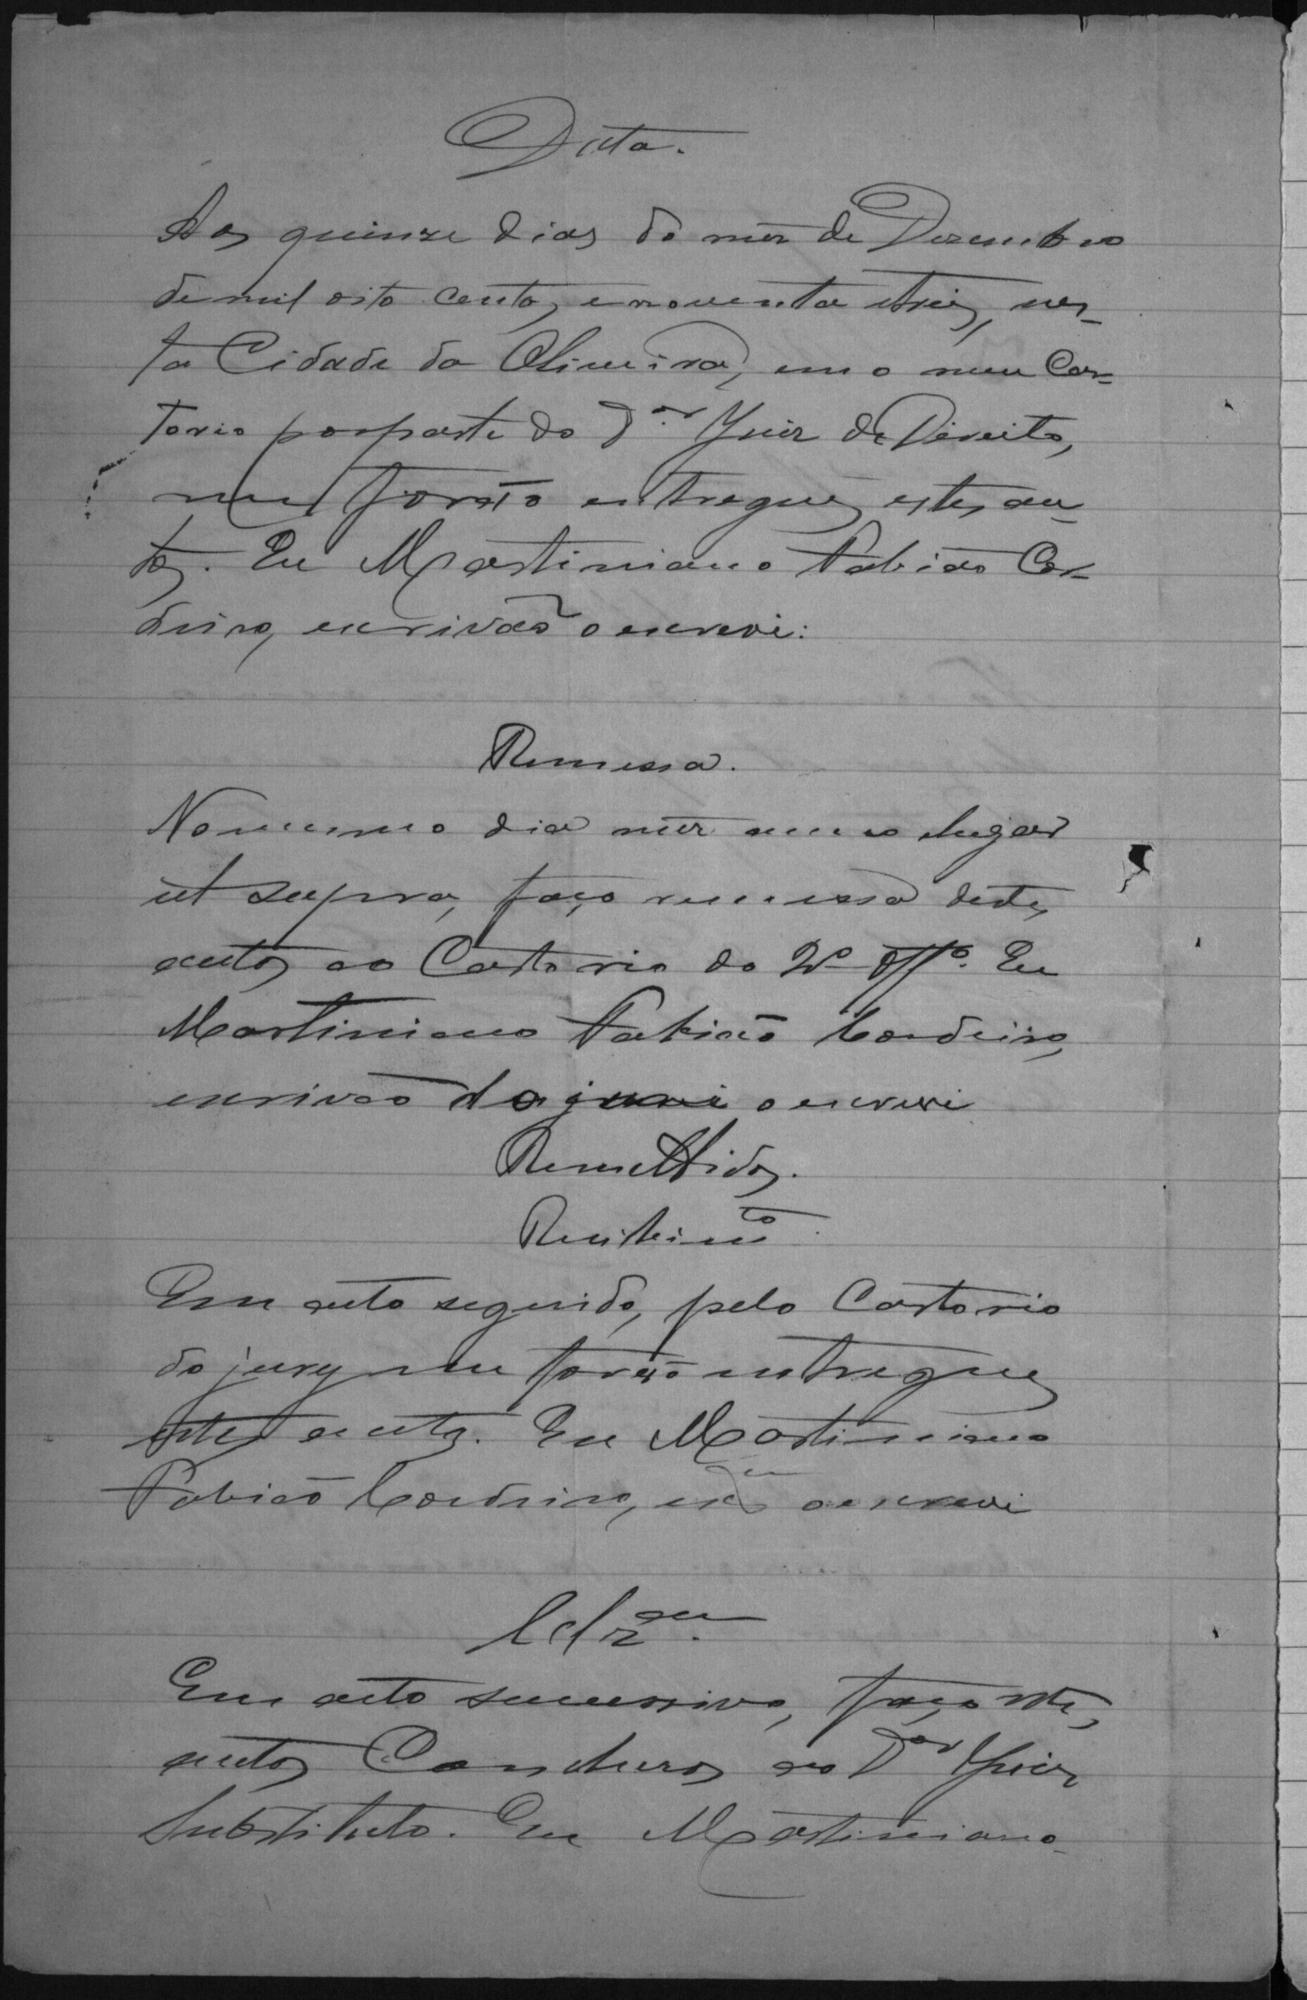 Data.
Aos quinze dias do mez de Dezembro
de mil oito centos e noventa e tres, nes-
ta Cidade da Oliveira, em o meu Car-
torio por parte do D.or Juiz de Direito,
me forão entregues estes au-
tos. Eu Martiniano Fabião Cor-
deiro, escrivão o escrevi:
Remessa.
No mesmo dia mez anno e lugar
ut supra, faço remessa destes
autos ao Cartorio do 2º Offº. Eu
Martiniano Fabião Cordeiro,
escrivão do jury o escrevi
Remettidos.
Recebimto.
Em acto seguido, pelo Cartorio
do jury me forão entregues
estes autos. Eu Martiniano
Fabião Cordeiro, o escrevi
Clzam.
Em acto successivo, faço estes
autos Conclusos ao Dor Juiz
Substituto. Eu Martiniano